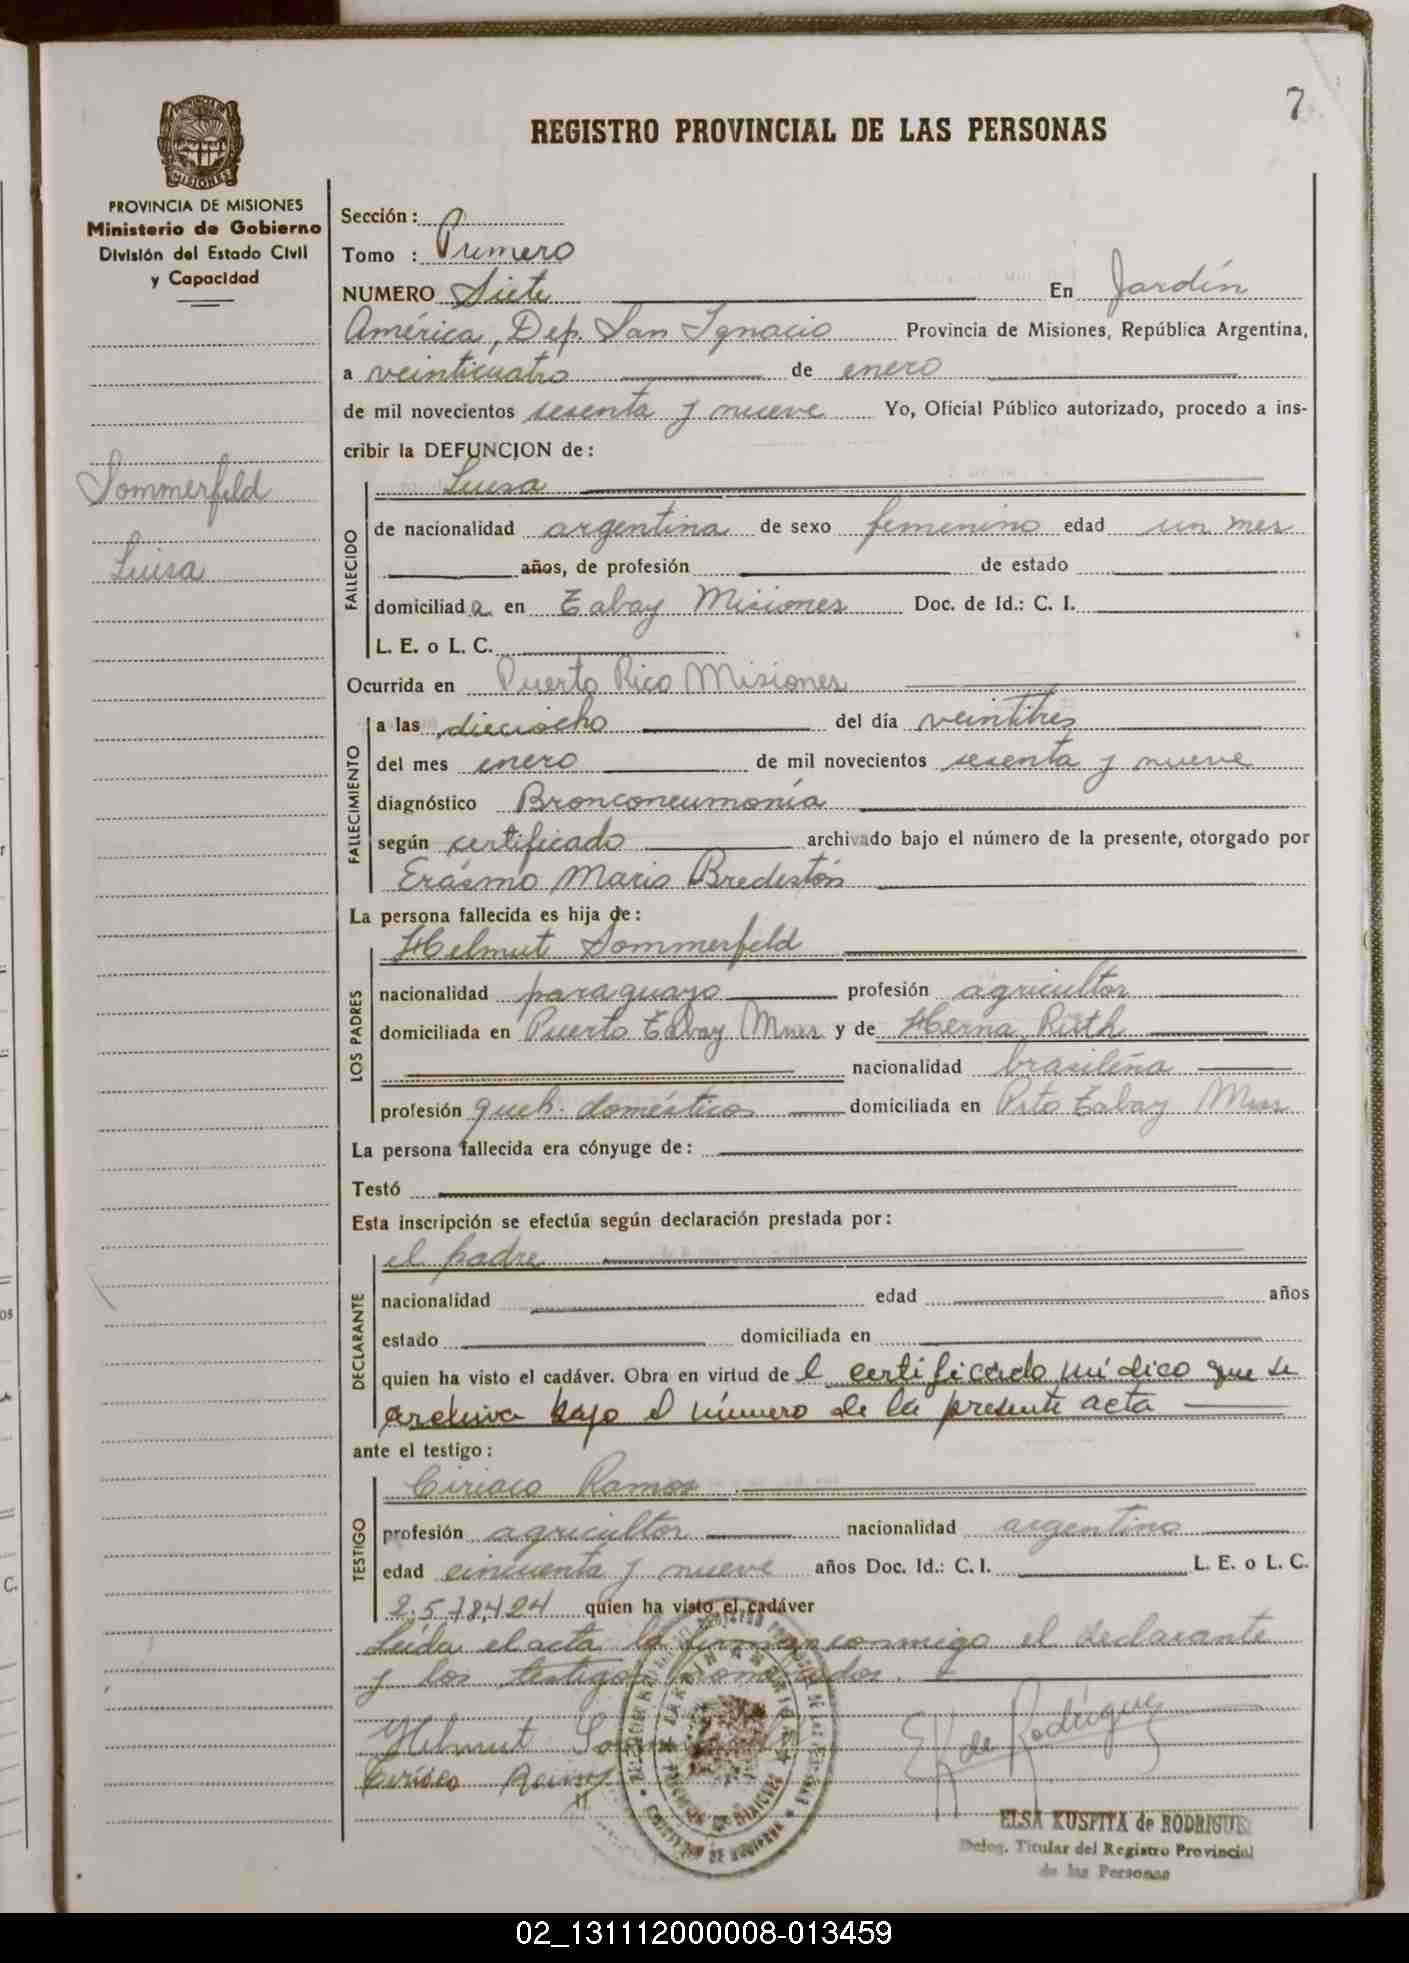 7
REGISTRO PROVINCIAL DE LAS PERSONAS
PROVINCIA DE MISIONES
Ministerio de Gobierno
División del Estado Civil
y Capacidad
Sommerfeld
Luisa
Sección:
Tomo : Primero
NUMERO Siete En Jardín
América, Dep. San Ignacio Provincia de Misiones, República Argentina,
a veinticuatro de enero
de mil novecientos sesenta y nueve Yo, Oficial Público autorizado, procedo a ins-
cribir la DEFUNCION de:
FALLECIDO
Luisa
de nacionalidad argentina de sexo femenino edad un mes
años, de profesión de estado
domiciliada en Tabay Misiones Doc. de Id.: C. I.
L. E. o L. C.
Ocurrida en Puerto Rico Misiones
FALLECIMIENTO
a las dieciocho del día veintitres
del mes enero de mil novecientos sesenta y nueve
diagnóstico Bronconeumonía
según certificado archivado bajo el número de la presente, otorgado por
Erásmo Mario Bredestón
La persona fallecida es hija de:
LOS PADRES
Helmut Sommerfeld
nacionalidad paraguayo profesión agricultor
domiciliada en Puerto Tabay Mnes y de Herna Rüth
nacionalidad brasileña
profesión queh. domésticos domiciliada en Pto Tabay Mnes
La persona fallecida era cónyuge de:
Testó
Esta inscripción se efectúa según declaración prestada por:
DECLARANTE
el padre
nacionalidad edad años
estado domiciliada en
quien ha visto el cadáver. Obra en virtud de l certificado médico que se
archiva bajo el número de la presente acta
ante el testigo:
TESTIGO
Ciriaco Ramos
profesión agricultor nacionalidad argentino
edad cincuenta y nueve años Doc. Id.: C. I. L. E. o L. C.
2.578.424 quien ha visto el cadáver
Leída el acta la firman conmigo el declarante
y los testigos nombrados.
Helmut
Ciriaco Ramos
EK de Rodríguez
ELSA KUSPITA de RODRIGUEZ
Deleg. Titular del Registro Provincial
de las Personas
02_131112000008-013459